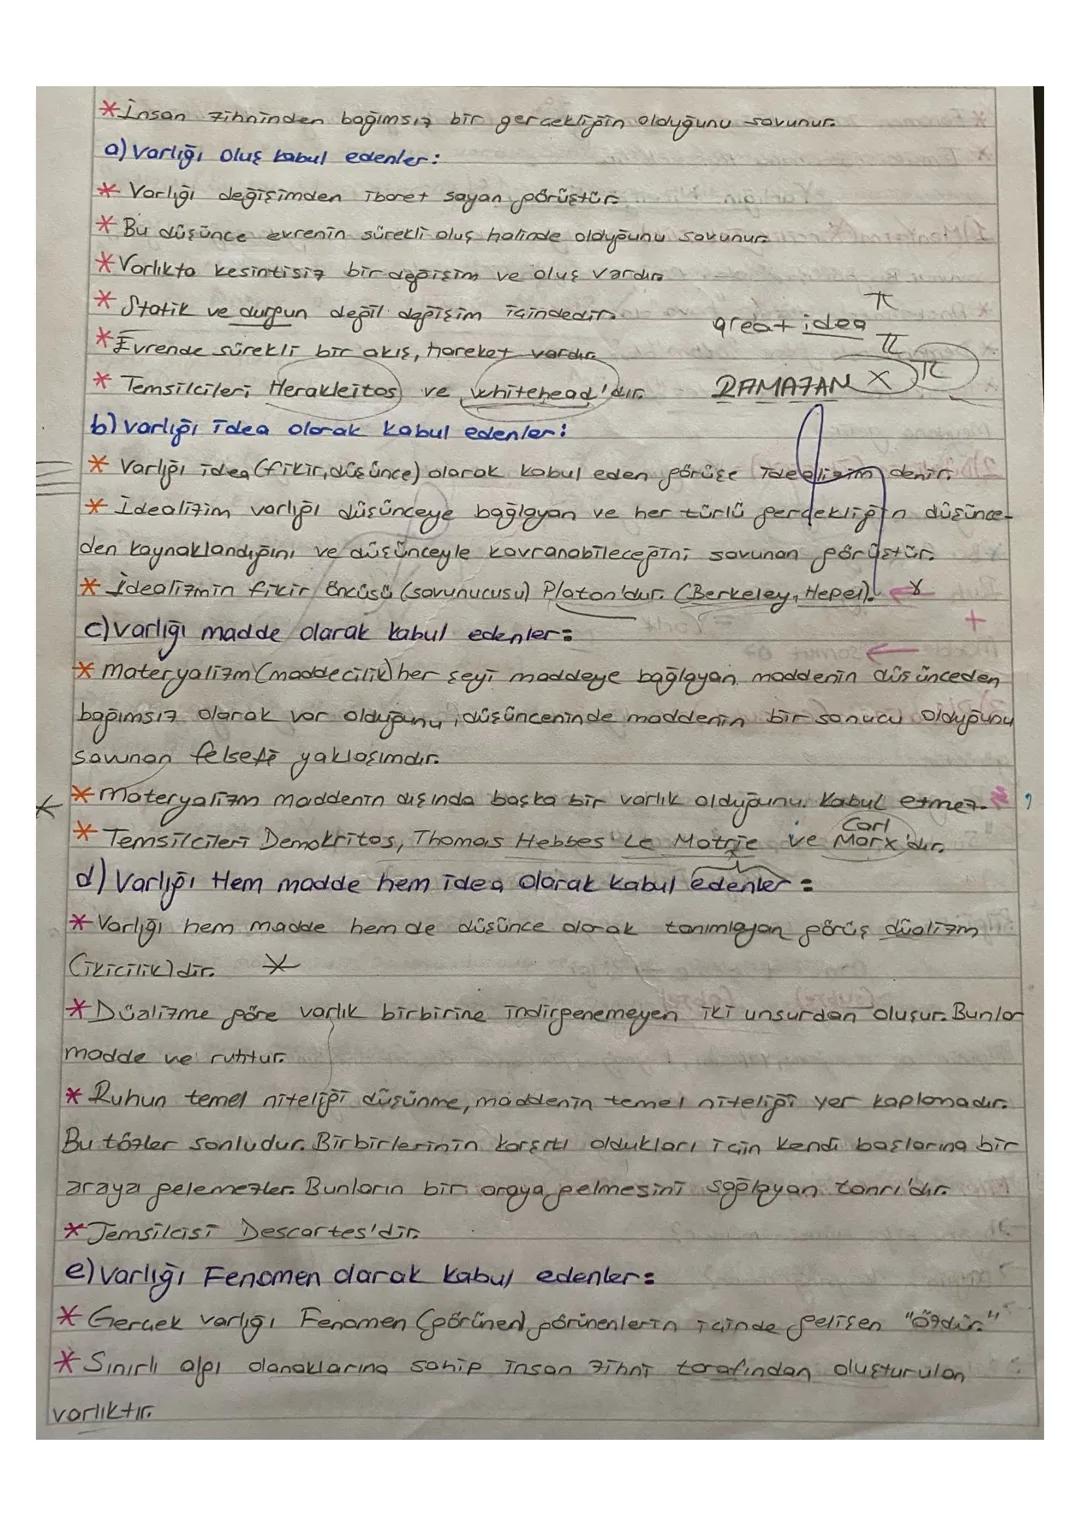 * İnsan zihninden bağımsız bir gerçekliğin olduğunu savunur.
a) Varlığı oluş kabul edenler:
* Varlığı değişimden ibaret sayan görüştür.
* Bu düşünce evrenin sürekli oluş halinde olduğunu savunur.
* Varlıkta kesintisiz bir değişim ve oluş vardır.
* Statik ve durgun değil değişim içindedir.
great idea π
π
* Evrende sürekli bir akış, hareket vardır.
* Temsilcileri Herakleitos ve Whitehead'dır.
RAMAZAN X π
b) Varlığı idea olarak kabul edenler:
* Varlığı idea (fikir, düşünce) olarak kabul eden görüşe idealizm denir.
* İdealizm varlığı düşünceye bağlayan ve her türlü gerdekliğin düşünce-
den kaynaklandığını ve düşünceyle kavranabileceğini savunan görüştür.
* İdealizmin fikir öncüsü (savunucusu) Platon'dur. (Berkeley, Hegel).
c) Varlığı madde olarak kabul edenler:
* Materyalizm (maddecilik) her şeyi maddeye bağlayan maddenin düşünceden
bağımsız olarak var olduğunu, düşünceninde maddenin bir sonucu olduğunu
savunan felsefi yaklaşımdır.
* Materyalizm maddenin dışında başka bir varlık olduğunu kabul etmez.
* Temsilcileri Demokritos, Thomas Hebbes Le Matrie ve Carl Marx'dır.
d) Varlığı Hem madde hem idea olarak kabul edenler:
* Varlığı hem madde hem de düşünce olarak tanımlayan görüş düalizm
(ikicilik)dir.
* Düalizme göre varlık birbirine indirgenemeyen iki unsurdan oluşur. Bunlar
madde ve ruhtur.
* Ruhun temel niteliği düşünme, maddenin temel niteliği yer kaplamadır.
Bu tözler sonludur. Birbirlerinin karşıtı oldukları için kendi başlarına bir
araya gelemezler. Bunların bir araya gelmesini sağlayan tanrı'dır.
* Temsilcisi Descartes'dir.
e) Varlığı Fenomen olarak kabul edenler:
* Gerçek varlığı Fenomen (görünen) görünenlerin içinde gelişen "özdür."
* Sınırlı algı olanaklarına sahip insan zihni tarafından oluşturulan
varlıktır.